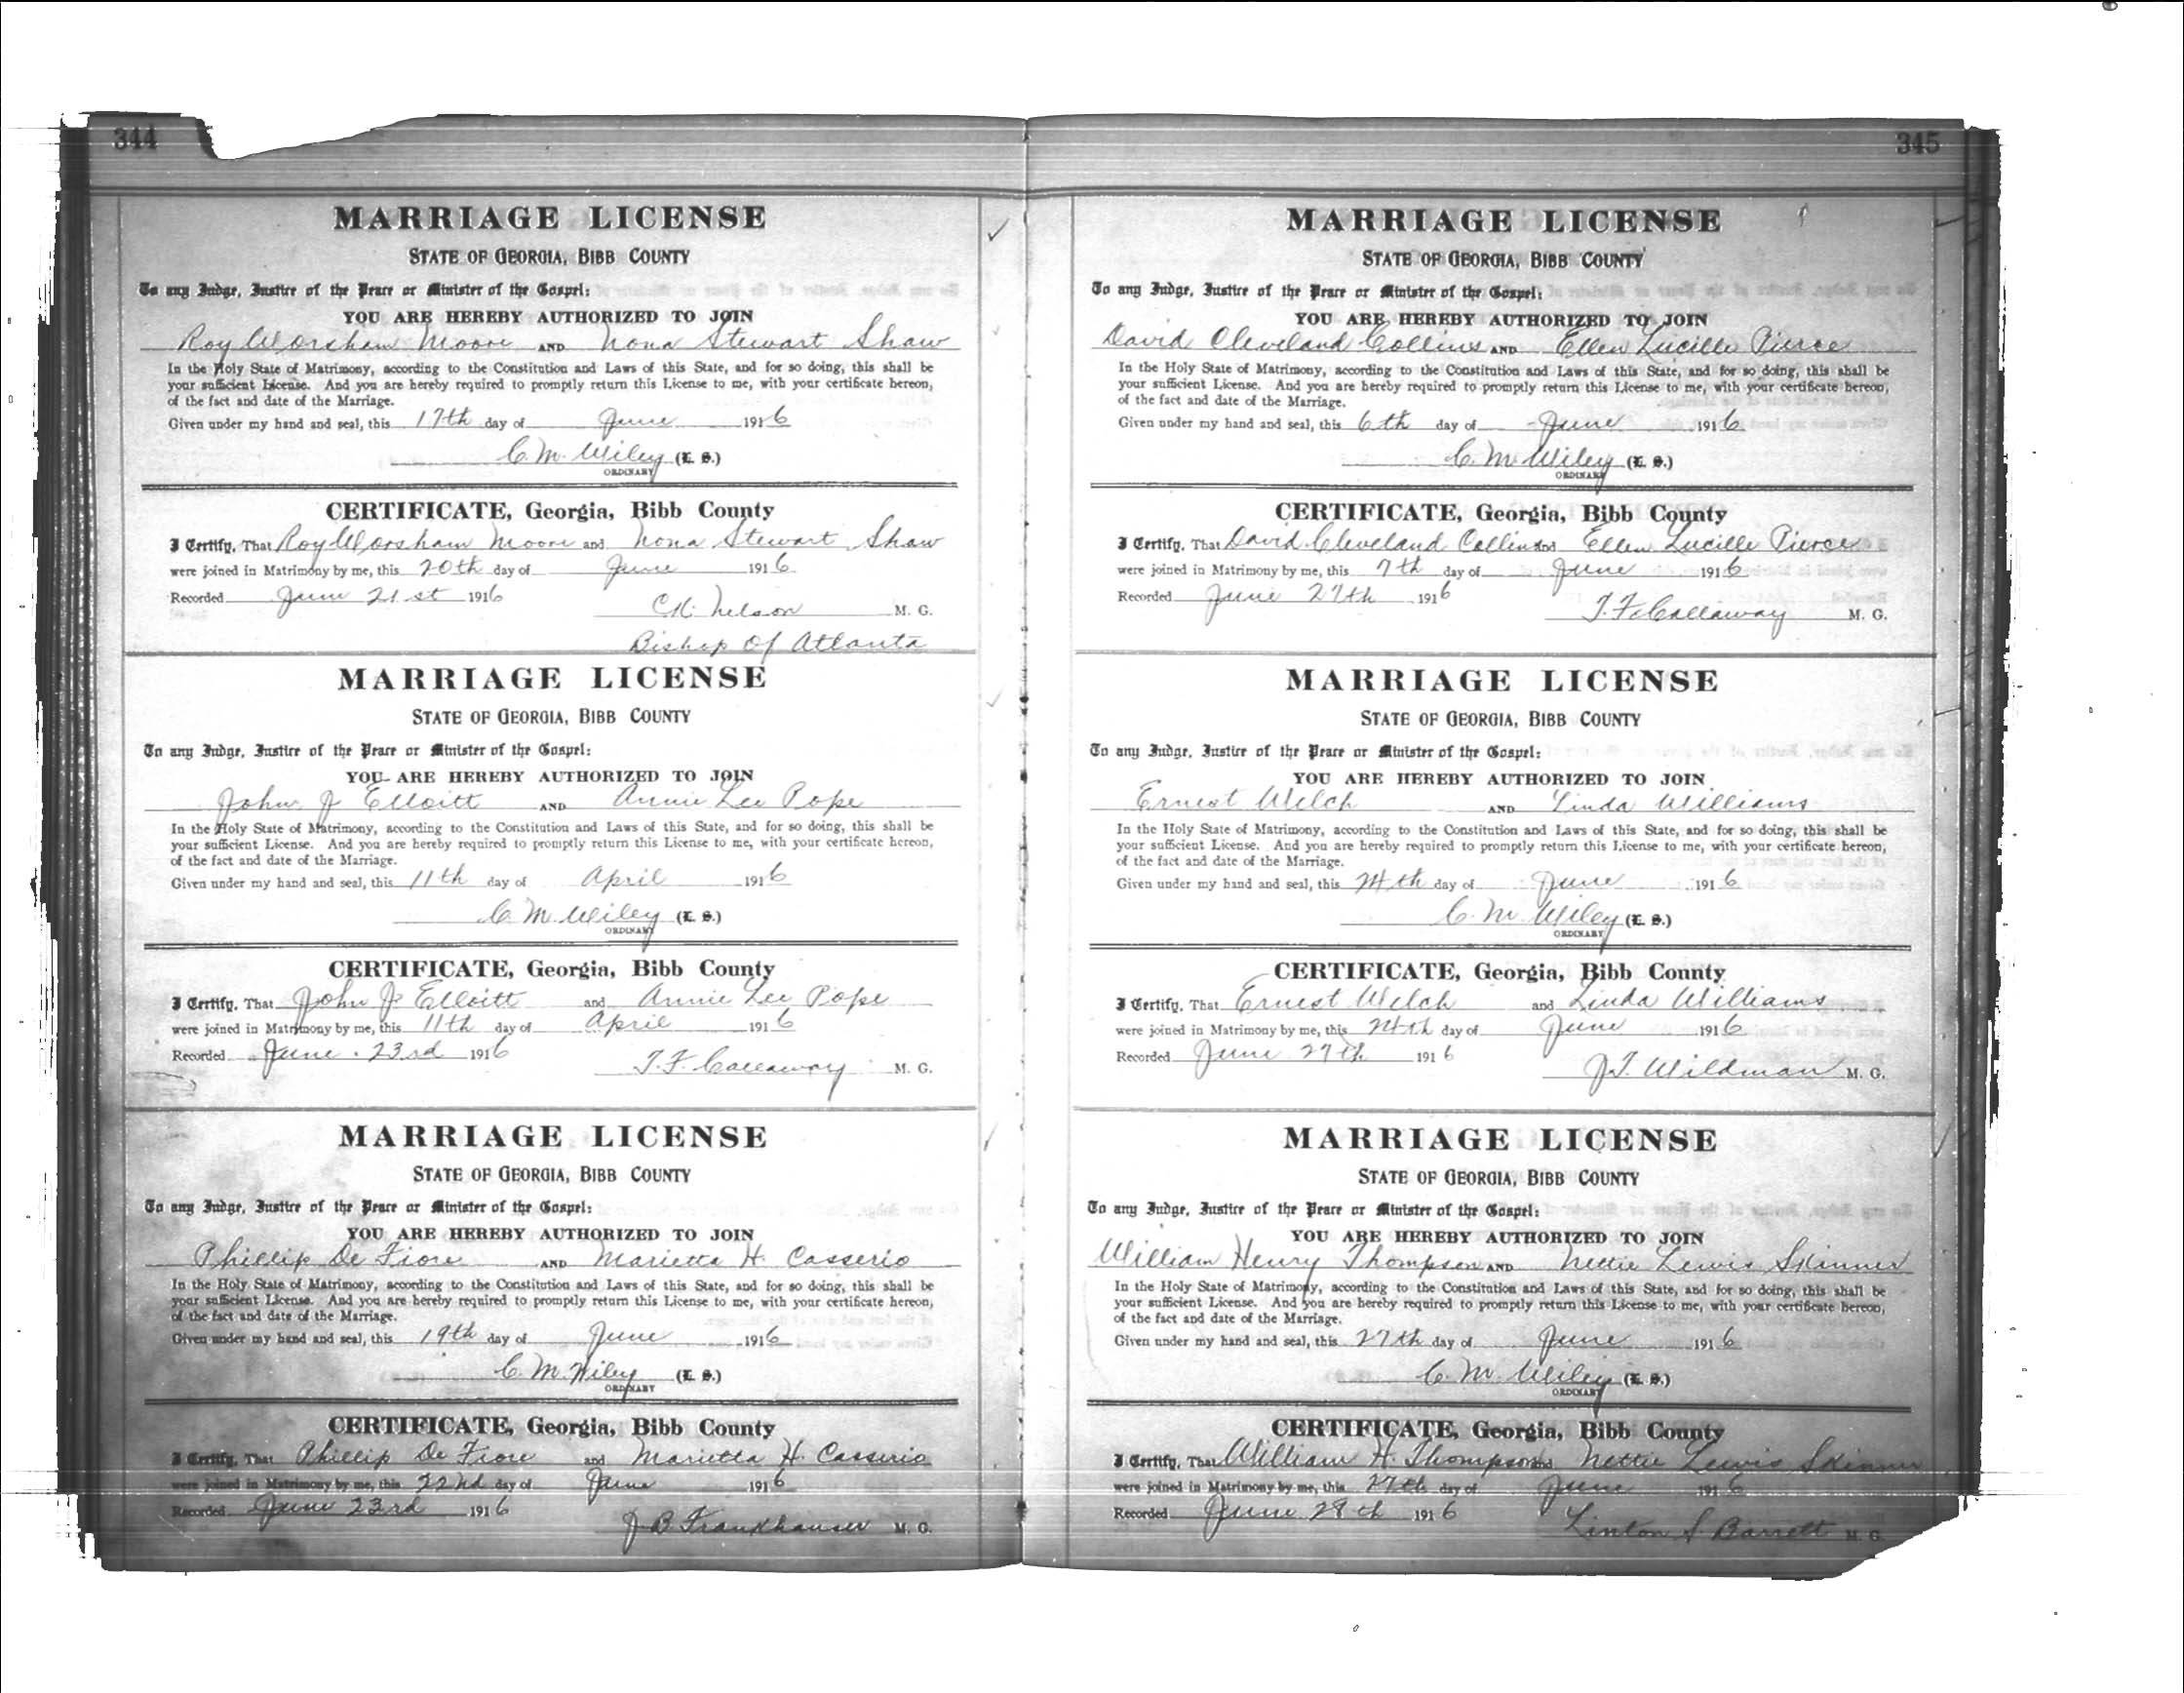 344
MARRIAGE LICENSE
STATE OF GEORGIA, BIBB COUNTY
To any Judge, Justice of the Peace or Minister of the Gospel:
YOU ARE HEREBY AUTHORIZED TO JOIN
Roy Worsham Moore AND Nona Stewart Shaw
In the Holy State of Matrimony, according to the Constitution and Laws of this State, and for so doing, this shall be
your sufficient License. And you are hereby required to promptly return this License to me, with your certificate hereon,
of the fact and date of the Marriage.
Given under my hand and seal, this 17th day of June 1916
C. M. Wiley (L. S.)
ORDINARY
CERTIFICATE, Georgia, Bibb County
I Certify, That Roy Worsham Moore and Nona Stewart Shaw
were joined in Matrimony by me, this 20th day of June 1916
Recorded June 21st 1916
CK Nelson M. G.
Bishop Of Atlanta
MARRIAGE LICENSE
STATE OF GEORGIA, BIBB COUNTY
To any Judge, Justice of the Peace or Minister of the Gospel:
YOU ARE HEREBY AUTHORIZED TO JOIN
John J Elloitt AND Annie Lee Pope
In the Holy State of Matrimony, according to the Constitution and Laws of this State, and for so doing, this shall be
your sufficient License. And you are hereby required to promptly return this License to me, with your certificate hereon,
of the fact and date of the Marriage.
Given under my hand and seal, this 11th day of April 1916
C. M. Wiley (L. S.)
ORDINARY
CERTIFICATE, Georgia, Bibb County
I Certify, That John J. Elloitt and Annie Lee Pope
were joined in Matrimony by me, this 11th day of April 1916
Recorded June 23rd 1916
T. F. Callaway M. G.
MARRIAGE LICENSE
STATE OF GEORGIA, BIBB COUNTY
To any Judge, Justice of the Peace or Minister of the Gospel:
YOU ARE HEREBY AUTHORIZED TO JOIN
Phillip De Fiore AND Marietta H. Casserio
In the Holy State of Matrimony, according to the Constitution and Laws of this State, and for so doing, this shall be
your sufficient License. And you are hereby required to promptly return this License to me, with your certificate hereon,
of the fact and date of the Marriage.
Given under my hand and seal, this 19th day of June 1916
C. M. Wiley (L. S.)
ORDINARY
CERTIFICATE, Georgia, Bibb County
I Certify, That Phillip De Fiore and Marietta H. Casserio
were joined in Matrimony by me, this 22nd day of June 1916
Recorded June 23rd 1916
J B Frankhauser M. G.
345
MARRIAGE LICENSE
STATE OF GEORGIA, BIBB COUNTY
To any Judge, Justice of the Peace or Minister of the Gospel:
YOU ARE HEREBY AUTHORIZED TO JOIN
David Cleveland Collins AND Ellen Lucille Pierce
In the Holy State of Matrimony, according to the Constitution and Laws of this State, and for so doing, this shall be
your sufficient License. And you are hereby required to promptly return this License to me, with your certificate hereon,
of the fact and date of the Marriage.
Given under my hand and seal, this 6th day of June 1916
C. M. Wiley (L. S.)
ORDINARY
CERTIFICATE, Georgia, Bibb County
I Certify, That David Cleveland Collins and Ellen Lucille Pierce
were joined in Matrimony by me, this 7th day of June 1916
Recorded June 27th 1916
T. F. Callaway M. G.
MARRIAGE LICENSE
STATE OF GEORGIA, BIBB COUNTY
To any Judge, Justice of the Peace or Minister of the Gospel:
YOU ARE HEREBY AUTHORIZED TO JOIN
Ernest Welch AND Linda Williams
In the Holy State of Matrimony, according to the Constitution and Laws of this State, and for so doing, this shall be
your sufficient License. And you are hereby required to promptly return this License to me, with your certificate hereon,
of the fact and date of the Marriage.
Given under my hand and seal, this 24th day of June 1916
C. M. Wiley (L. S.)
ORDINARY
CERTIFICATE, Georgia, Bibb County
I Certify, That Ernest Welch and Linda Williams
were joined in Matrimony by me, this 24th day of June 1916
Recorded June 27th 1916
J. T. Wildman M. G.
MARRIAGE LICENSE
STATE OF GEORGIA, BIBB COUNTY
To any Judge, Justice of the Peace or Minister of the Gospel:
YOU ARE HEREBY AUTHORIZED TO JOIN
William Henry Thompson AND Nettie Lewis Skinner
In the Holy State of Matrimony, according to the Constitution and Laws of this State, and for so doing, this shall be
your sufficient License. And you are hereby required to promptly return this License to me, with your certificate hereon,
of the fact and date of the Marriage.
Given under my hand and seal, this 27th day of June 1916
C. M. Wiley (L. S.)
ORDINARY
CERTIFICATE, Georgia, Bibb County
I Certify, That William H. Thompson and Nettie Lewis Skinner
were joined in Matrimony by me, this 27th day of June 1916
Recorded June 28th 1916
Linton S. Barrett M. G.